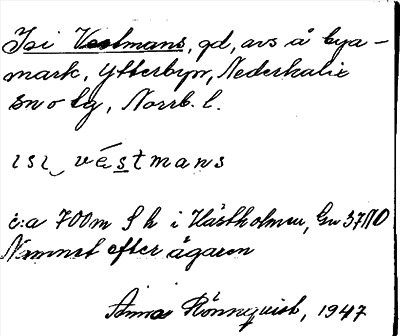 Isi Vestmans, gd, avs å bya-
mark, Ytterbyn, Nederkalix
sn o tg, Norrb. l.
ısı‿véstmans
c:a 700m S k i Hästholmen, Gw 37 NO
Namnet efter ägaren
Anna Rönnquist, 1947